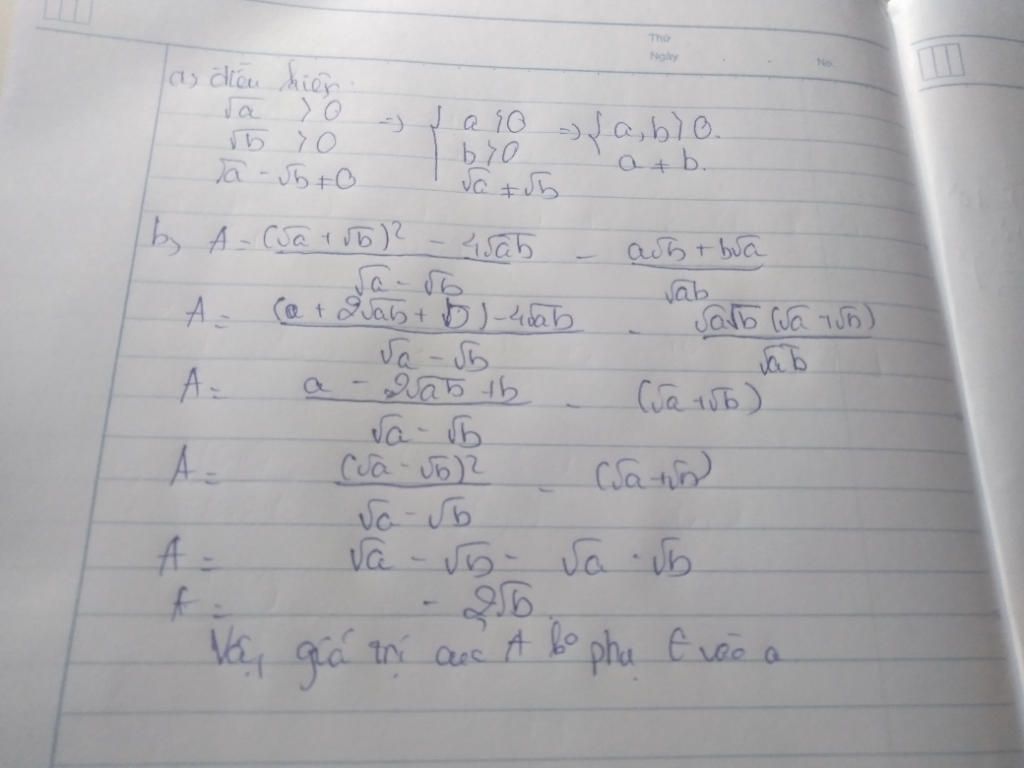 Thứ
Ngày . . No.
a) điều kiện:
√a > 0 => { a > 0 => { a, b > 0.
√b > 0 b > 0 a ≠ b.
√a - √b ≠ 0 √a ≠ √b
b) A = ((√a + √b)² - 4√ab)/(√a - √b) - (a√b + b√a)/√ab
A = ((a + 2√ab + b) - 4√ab)/(√a - √b) - (√a√b (√a + √b))/√ab
A = (a - 2√ab + b)/(√a - √b) - (√a + √b)
A = (√a - √b)²/(√a - √b) - (√a + √b)
A = √a - √b - √a - √b
A = - 2√b.
Vậy giá trị của A ko phụ t vào a